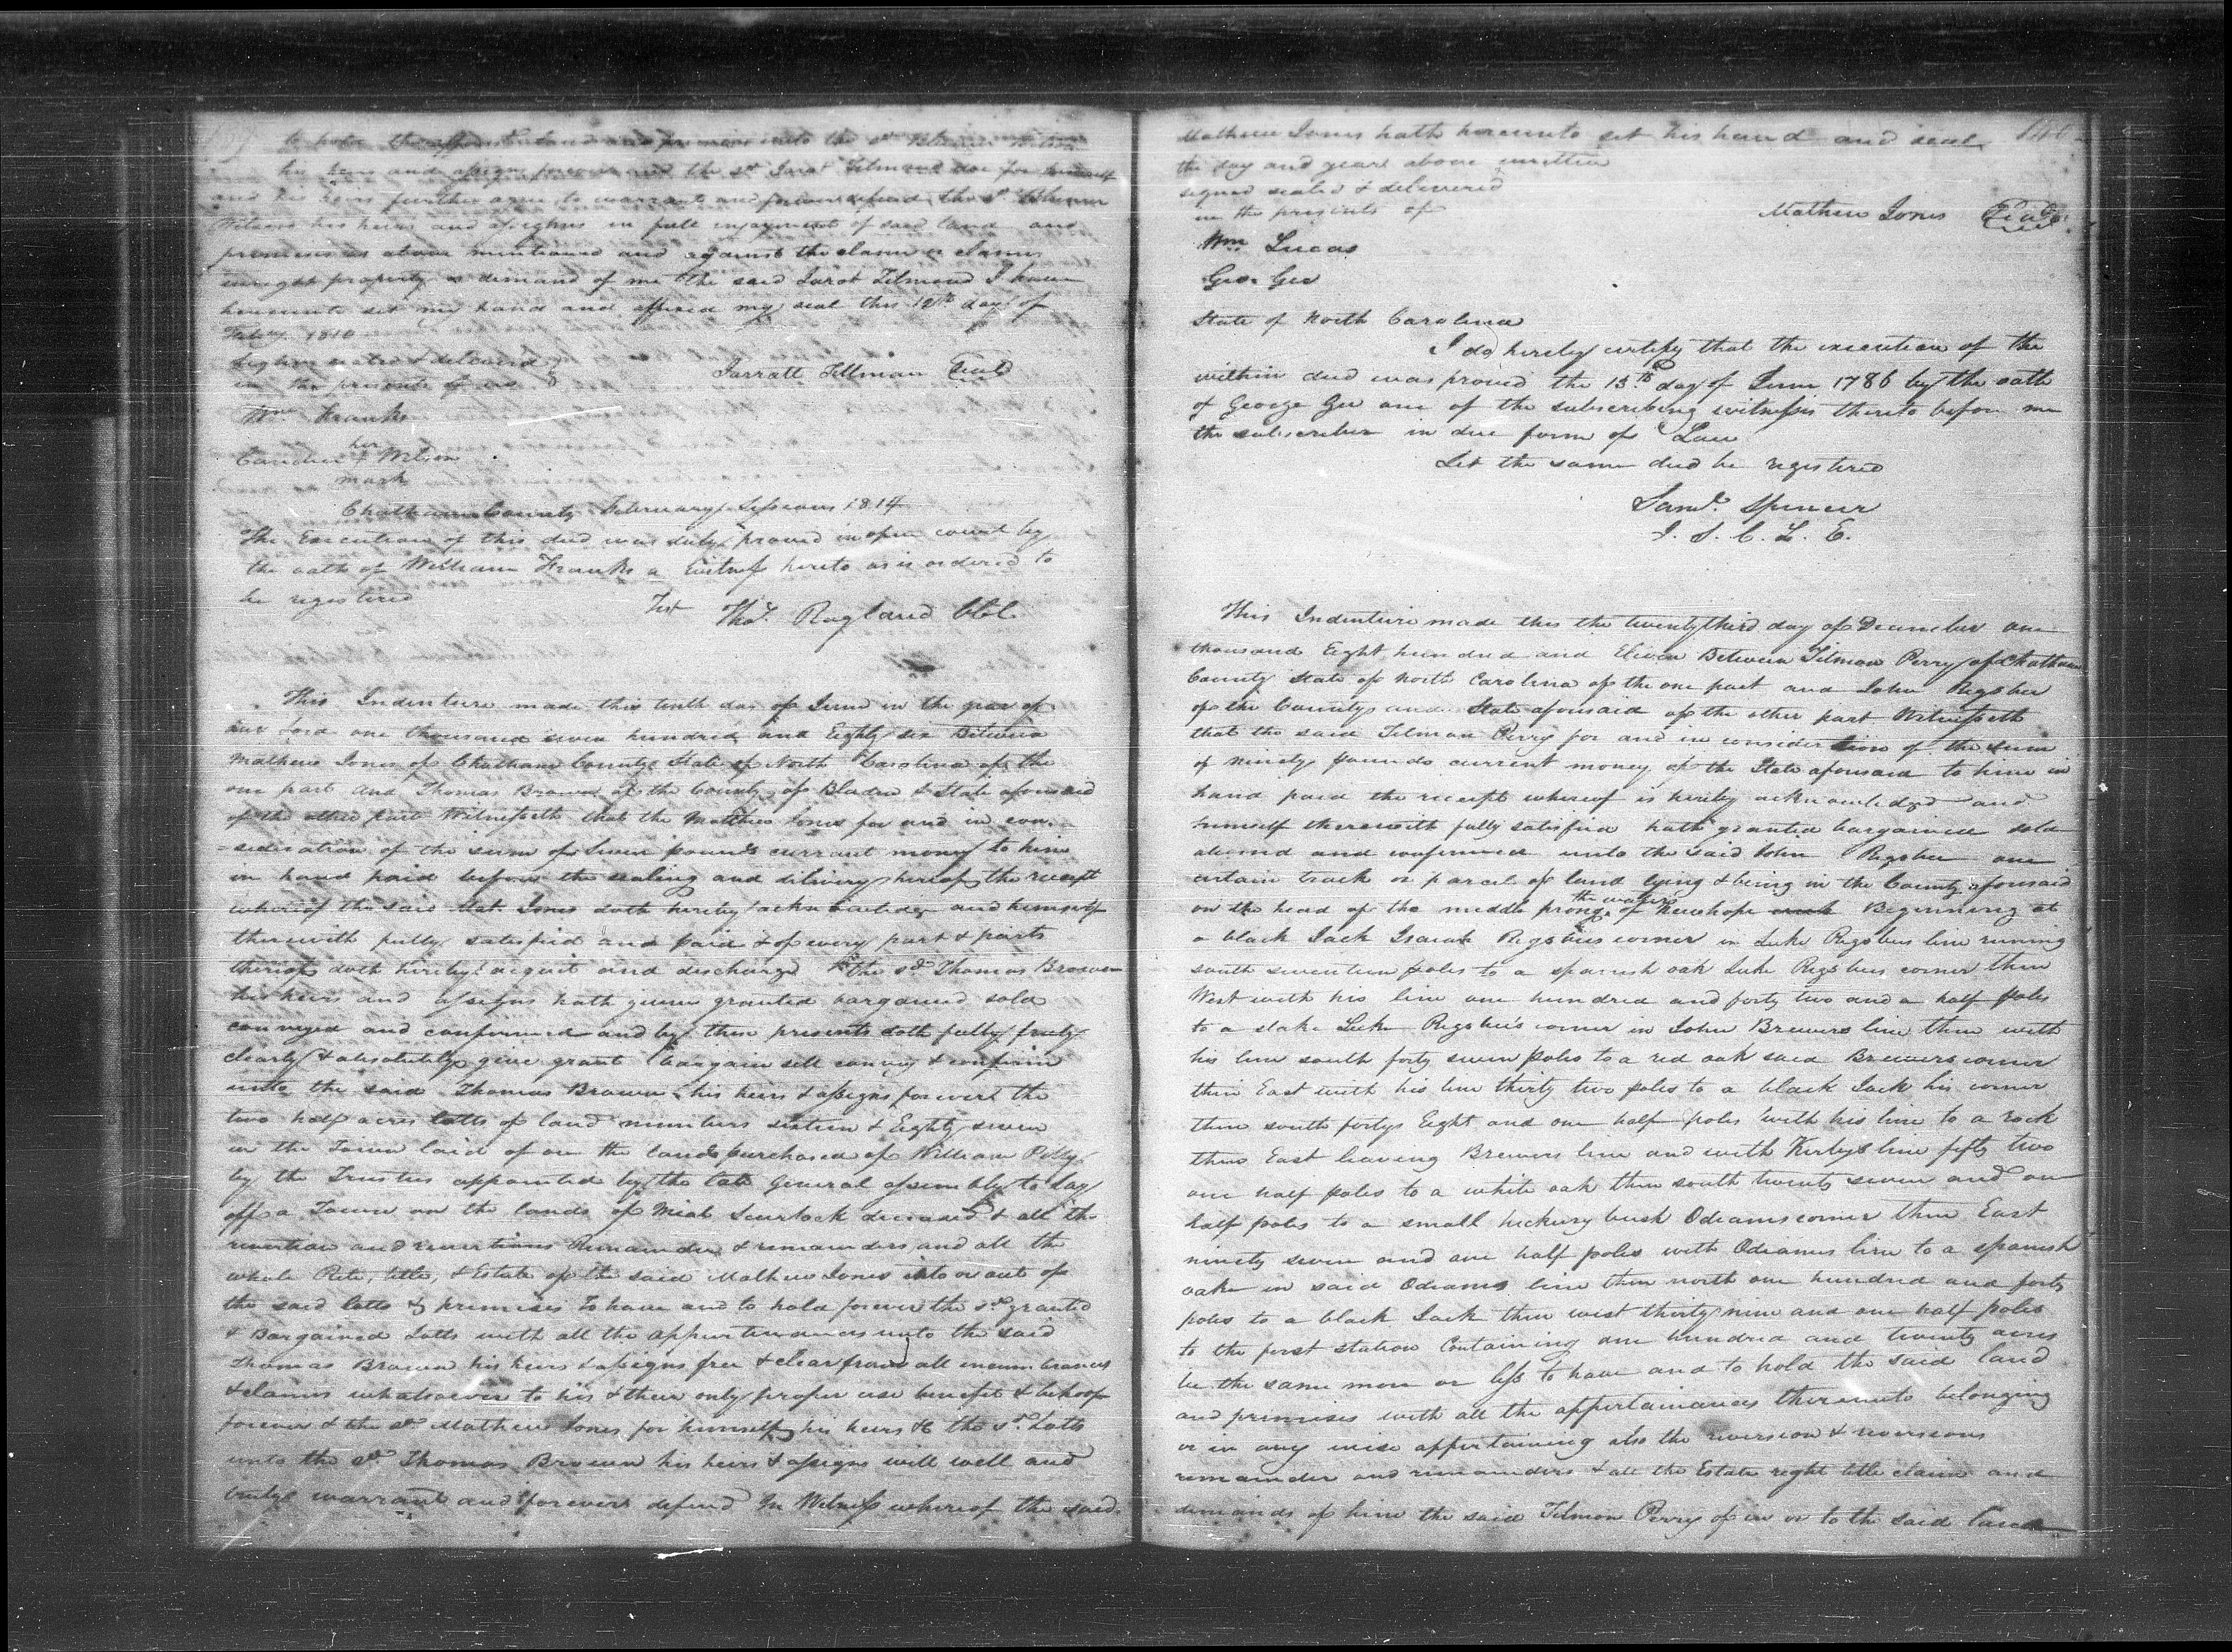 139
to hold the afforesd Land and premises unto the sd
his heirs and assigns forever and the sd Jarot Tilmond doe for himself
and his heirs further agree to warrant and forever defend the sd
Wilson his heirs and assighns in full injoyment of said land and
premises as above mentioned and against the claim or claims
inright property or demand of me the said Jarot Tilmond I have
hereunto set my hand and affixed my seal this 12th day of
Febuy 1810
Sighn sealed & delivered
in the presents of us
Jarratt Tillman Seal
Wm Franks
her
Candice + Wilson
mark
Chatham County February Sessions 1814
The Execution of this deed was duly proved in open court by
the oath of William Franks a Witness hereto as is ordered to
be registered
Test Thos. Ragland CCC
This Indenture made this tenth day of June in the year of
our Lord one thousand seven hundred and Eighty six Between
Mathew Jones of Chatham County State of North Carolina of the
one part and Thomas Brown of the County of Bladen & State aforesaid
of the other part Witnesseth that the Matthew Jones for and in con-
-sideration of the sum of Seven pounds currant money to him
in hand paid before the sealing and dilivery hereof the receipt
whereof the said Mat. Jones doth hereby acknowledge and himself
therewith fully satisfied and paid & of every part & parts
thereof doth hereby acquit and discharge the sd Thomas Brown
his heirs and assigns hath given granted bargained sold
conveyed and confirmed and by these presents doth fully freely
clearly & absolutely give grant bargain sell convey & confirm
unto the said Thomas Brown his heirs & assigns forever the
two half acres lotts of land numbers sixteen & Eighty seven
in the Town laid of on the lands purchased of William Petty
by the Trustees appointed by the late General assembly to lay
off a Town on the lands of Mial Scurlock deceased & all the
revertion and revertions Remainder & remainders and all the
whole Rite, title, & Estate of the said Mathew Jones into or out of
the said lotts & premises To have and to hold forever the sd granted
& Bargained Lotts with all the appurtenances unto the said
Thomas Brown his heirs & assigns free & clear from all incumbrances
& claims whatsoever to his & their only proper use benefit & behoof
forever & the sd Mathew Jones for himself his heirs &c the sd. Lotts
unto the sd Thomas Brown his heirs & assigns will well and
truly warrant and forever defend In Witness whereof the said
140
Mathew Jones hath hereunto set his hand and seal
the day and year above written
signed sealed & delivered
in the presents of
Mathew Jones Seal
Wm Lucas
Geo. Gee
State of North Carolina
I do hereby certify that the execution of the
within deed was proved the 15th day of June 1786 by the oath
of George Gee one of the subscribing witnesses thereto before me
the subscriber in due form of Law
Let the same deed be registered
Saml. Spencer
J. S. C. L. E.
This Indenture made this the twenty third day of December one
thousand Eight hundred and Eleven Between Tilmon Perry of Chatham
County State of North Carolina of the one part and John Rigsbee
of the County and State aforesaid of the other part Witnesseth
that the said Tilman Perry for and in consideration of the sum
of ninety pounds current money of the State aforesaid to him in
hand paid the receipt whereof is hereby acknowledged and
himself therewith fully satisfied hath granted bargained sold
aliened and confirmed unto the said John Rigsbee one
certain track or parcel of land lying & being in the County aforesaid
the waters
on the head of the middle prong of Newhope Beginning at
a black Jack Isaiah Rigsbees corner in Luke Rigsbees line runing
south seventeen poles to a spanish oak Luke Rigsbees corner then
West with his line one hundred and forty two and a half poles
to a stake Luke Rigsbee's corner in John Brewers line then with
his line south forty seven poles to a red oak said Brewers corner
then East with his line thirty two poles to a black Jack his corner
then south forty Eight and one half poles with his line to a rock
then East leaving Brewers line and with Kirbys line fifty two
one half poles to a white oak then south twenty seven and one
half poles to a small hickury bush Odeams corner then East
ninety seven and one half poles with Odeams line to a spanish
oake in said Odeams line then north one hundred and forty
poles to a black Jack then west thirty nine and one half poles
to the first station Containing one hundred and twenty acres
be the same more or less to have and to hold the said land
and premises with all the appertainances thereunto belonging
or in any wise appertaining also the reversion & reversions
remainder and remainders & all the Estate right title claim and
demands of him the said Tilmon Perry of in or to the said Land